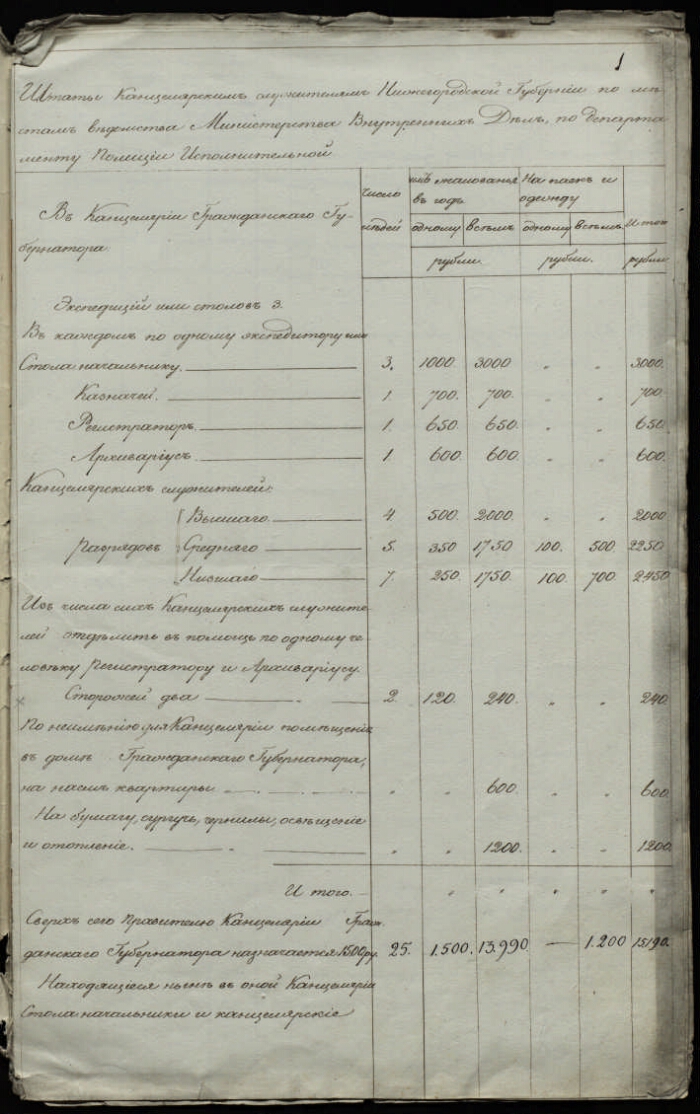 1
Штаты Канцелярскимъ служителямъ Нижегородской Губерніи по мѣ
стамъ вѣдомства Министерства Внутреннихъ Дѣлъ, по департа
менту Полиціи Исполнительной
Въ Канцеляріи Гражданскаго Гу-
бернатора
Число
людей
имъ жалованья
въ годъ.
На паекъ и
одежду
одному всѣмъ одному всѣмъ Итого
рубли. рубли. рубли
Экспедицій или столовъ 3.
Въ каждомъ по одному экспедитору или
Стола начальнику. 3. 1000. 3000 „ „ 3000.
Казначей. 1. 700. 700. „ „ 700
Регистраторъ. 1. 650. 650. „ „ 650
Архиваріусъ. 1. 600. 600. „ „ 600.
Канцелярскихъ служителей:
Высшаго 4. 500. 2000. „ „ 2000
разрядовъ Средняго 5. 350 1750 100. 500. 2250
Низшаго 7. 250. 1750. 100. 700. 2450
Изъ числа сихъ Канцелярскихъ служите-
лей отдѣлить въ помощь по одному че-
ловѣку Регистратору и Архиваріусу.
Сторожей два „ 2. 120. 240. „ „ 240.
По неимѣнію для Канцеляріи помѣщенія
въ домѣ Гражданскаго Губернатора,
на наемъ квартиры „ „ 600. „ „ 600.
На бумагу, сургучъ, чернилы, освѣщеніе
и отопленіе. „ „ „ 1200. „ „ 1200.
И того. „ „ „ „ „
Сверхъ сего Правителю Канцеляріи Граж-
данскаго Губернатора назначается 1500 ру. 25. 1.500. 13.990 — 1.200 15190.
Находящіеся нынѣ въ оной Канцеляріи
Стола начальники и канцелярскіе